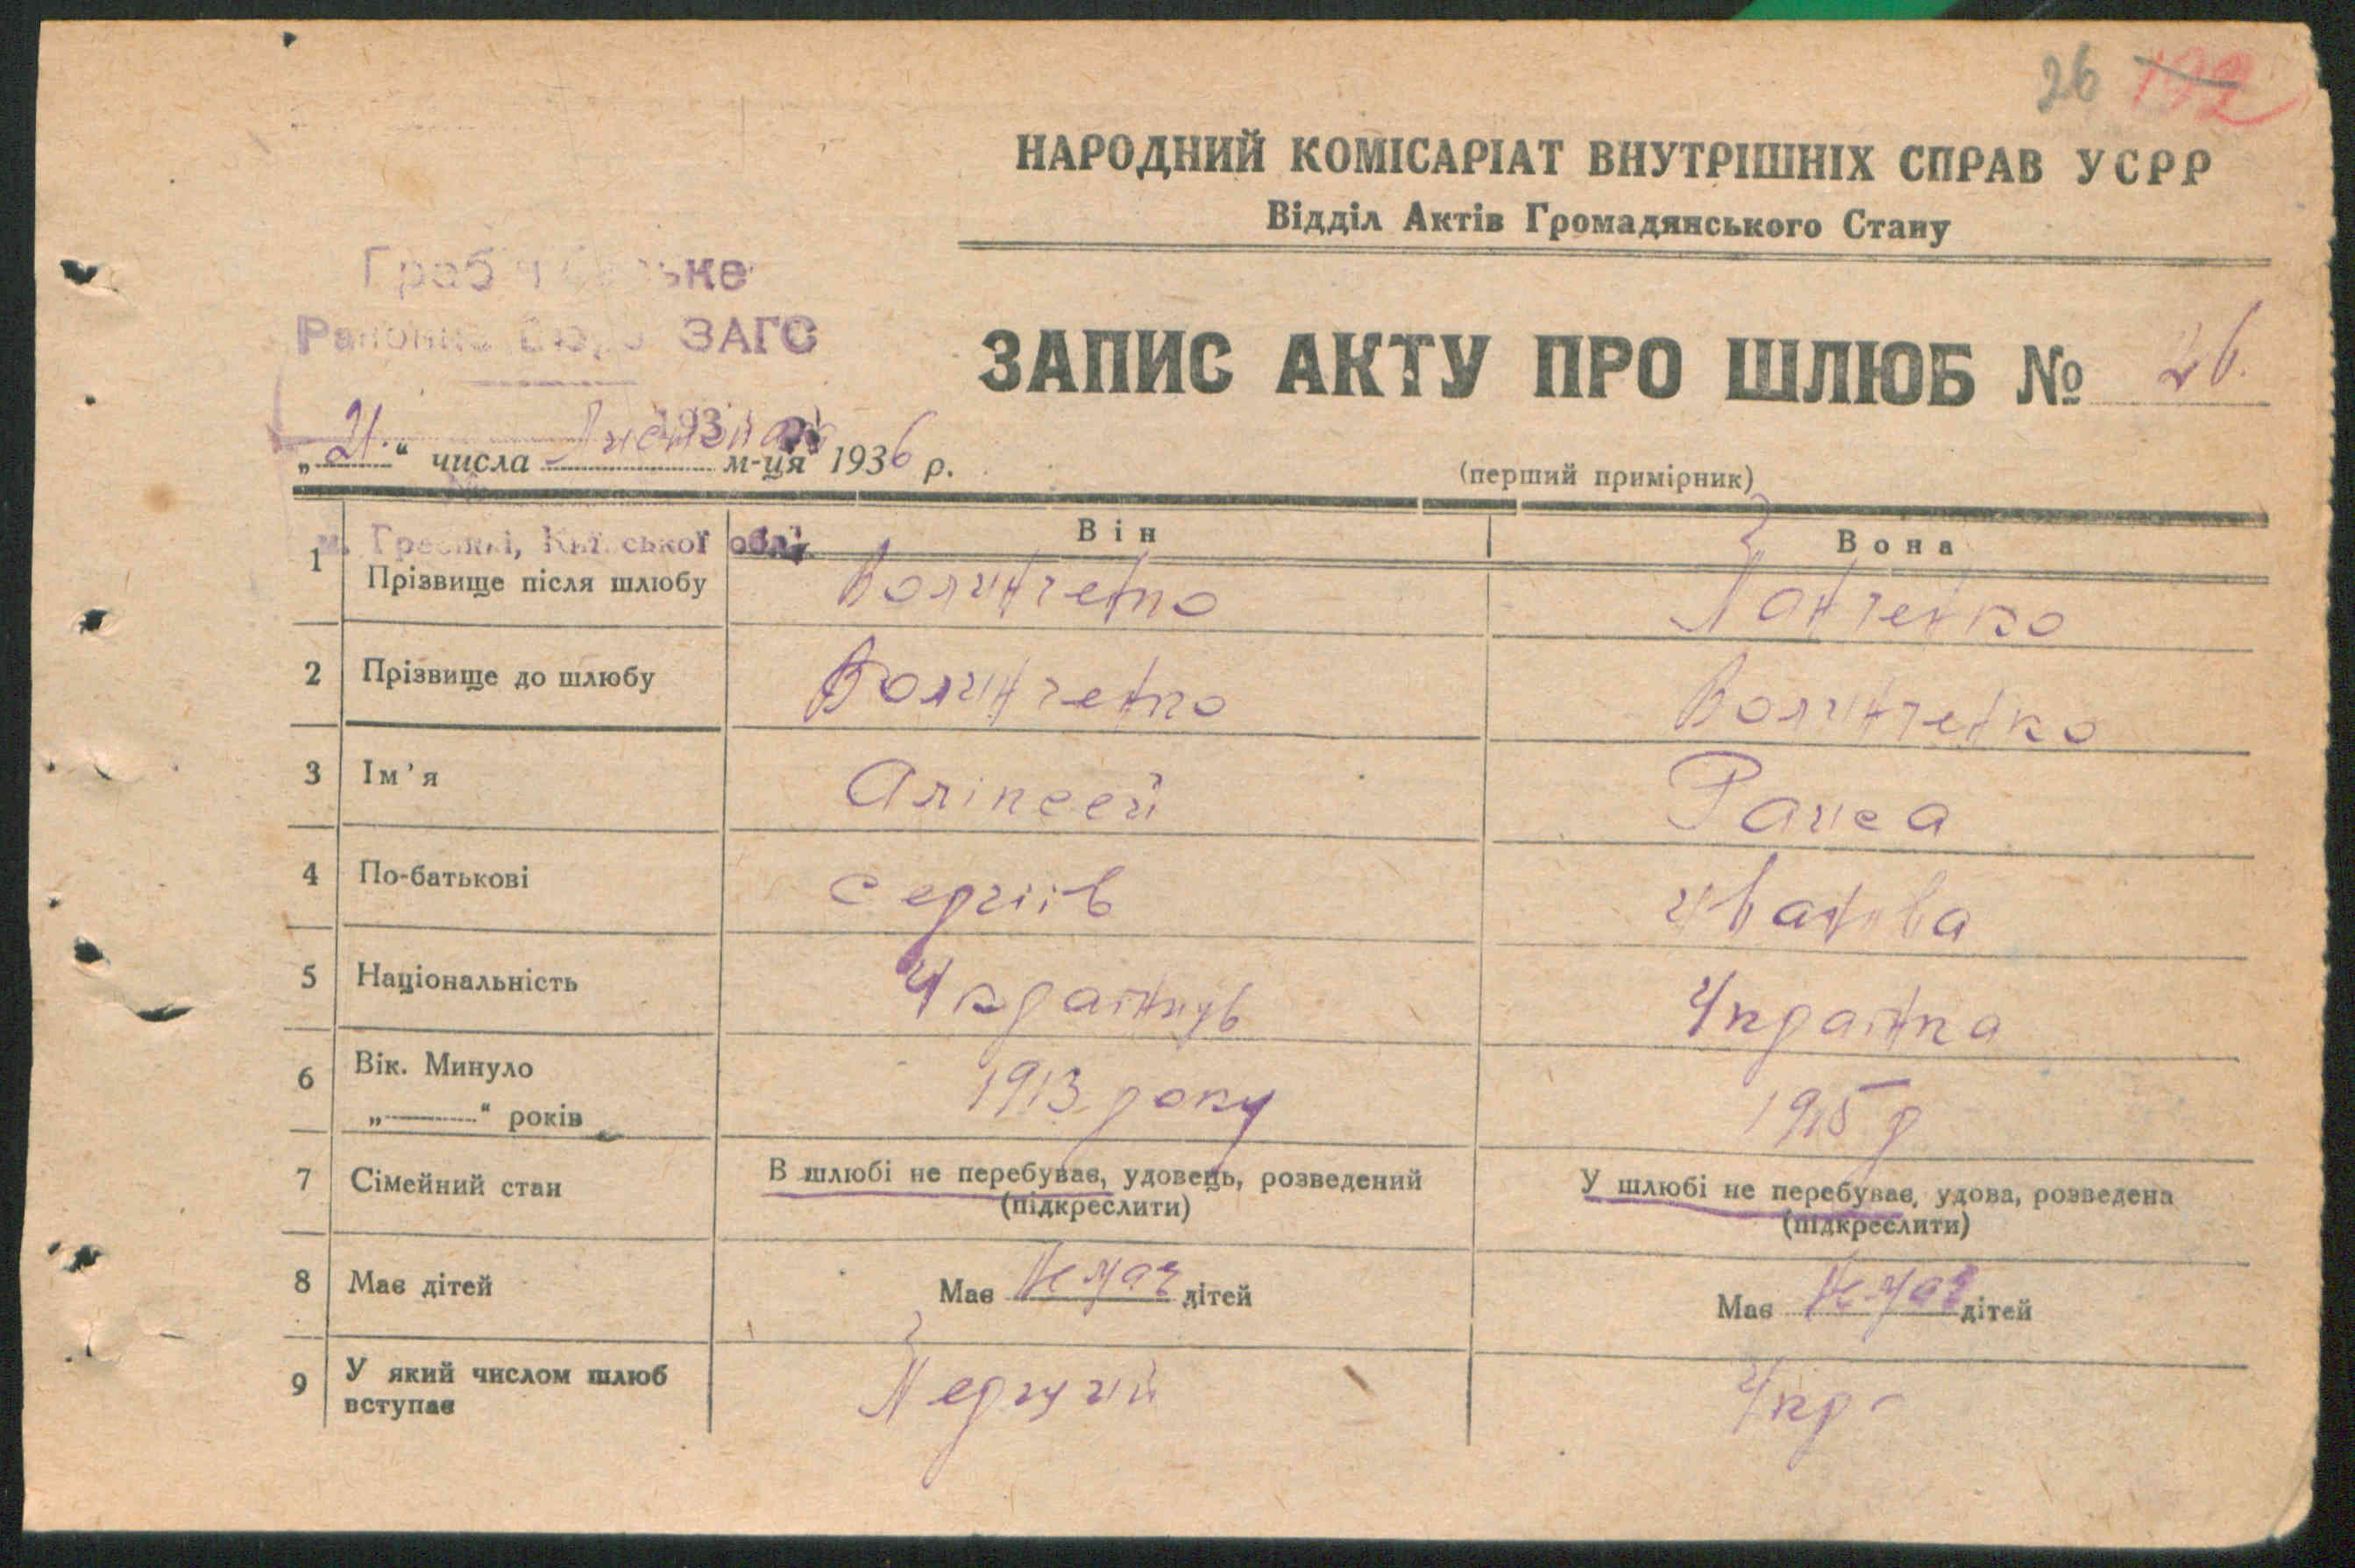 26 192
НАРОДНИЙ КОМІСАРІАТ ВНУТРІШНІХ СПРАВ УСРР
Відділ Актів Громадянського Стану
ЗАГС
ЗАПИС АКТУ ПРО ШЛЮБ № 26.
„21.“ числа Листопад м-ця 1936 р.
(перший примірник)
Він Вона
м. Гребінкі, Київської обл.
1 Прізвище після шлюбу Волинченко Панченко
2 Прізвище до шлюбу Волинченко Волинченко
3 Ім'я Аліксей Раиса
4 По-батькові Сергіів Иванівна
5 Національність Українць Українка
6 Вік. Минуло „ “ років 1913 року 1915 р
7 Сімейний стан В шлюбі не перебуває, удовець, розведений У шлюбі не перебуває, удова, розведена
(підкреслити) (підкреслити)
8 Має дітей Має Немає дітей Має Немає дітей
9 У який числом шлюб вступає Перший Укр-